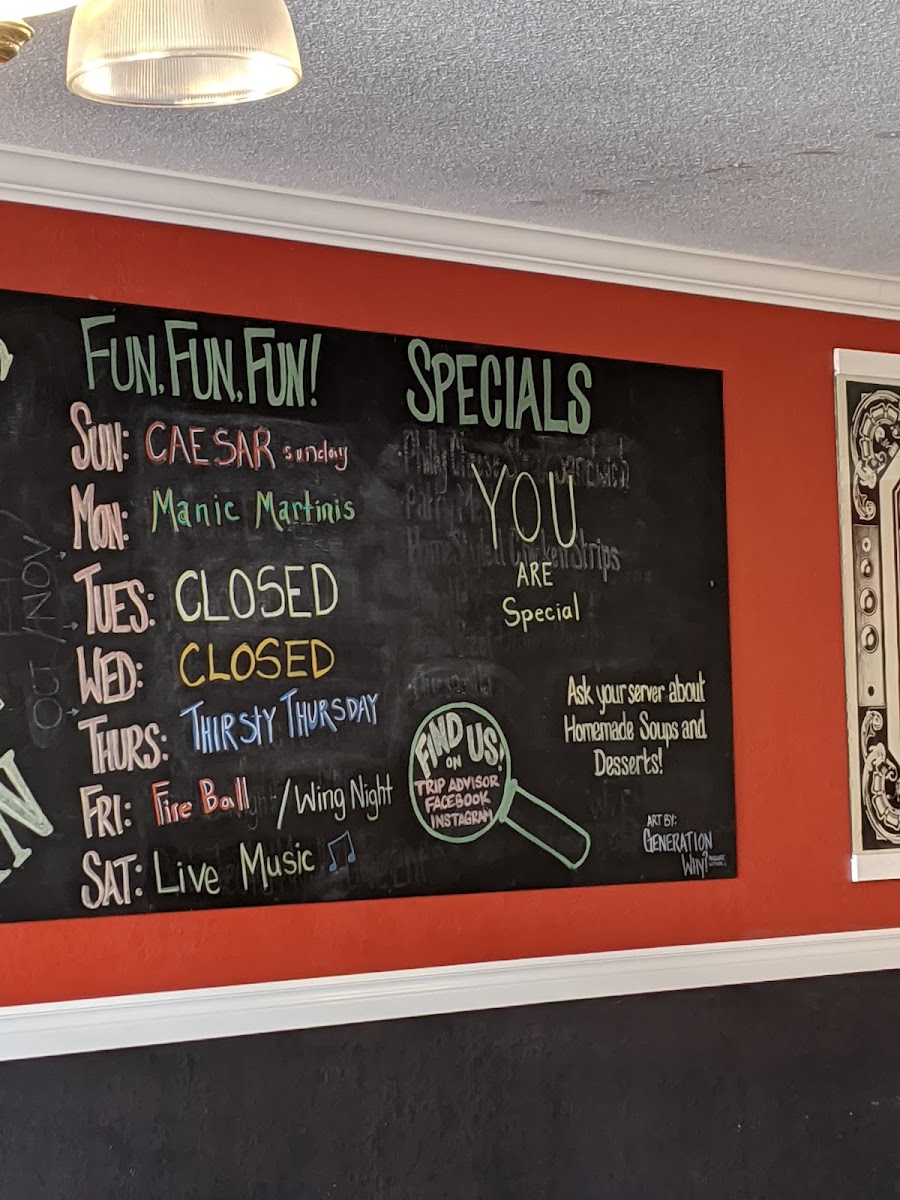 FUN, FUN, FUN!
SUN: CAESAR sunday
MON: Manic Martinis
TUES: CLOSED
WED: CLOSED
THURS: THIRSTY THURSDAY
FRI: Fire Ball / Wing Night
SAT: Live Music
OCT / NOV
SPECIALS
YOU
ARE
Special
Ask your server about
Homemade Soups and
Desserts!
FIND US!
ON
TRIP ADVISOR
FACEBOOK
INSTAGRAM
ART BY:
GENERATION
WHY?